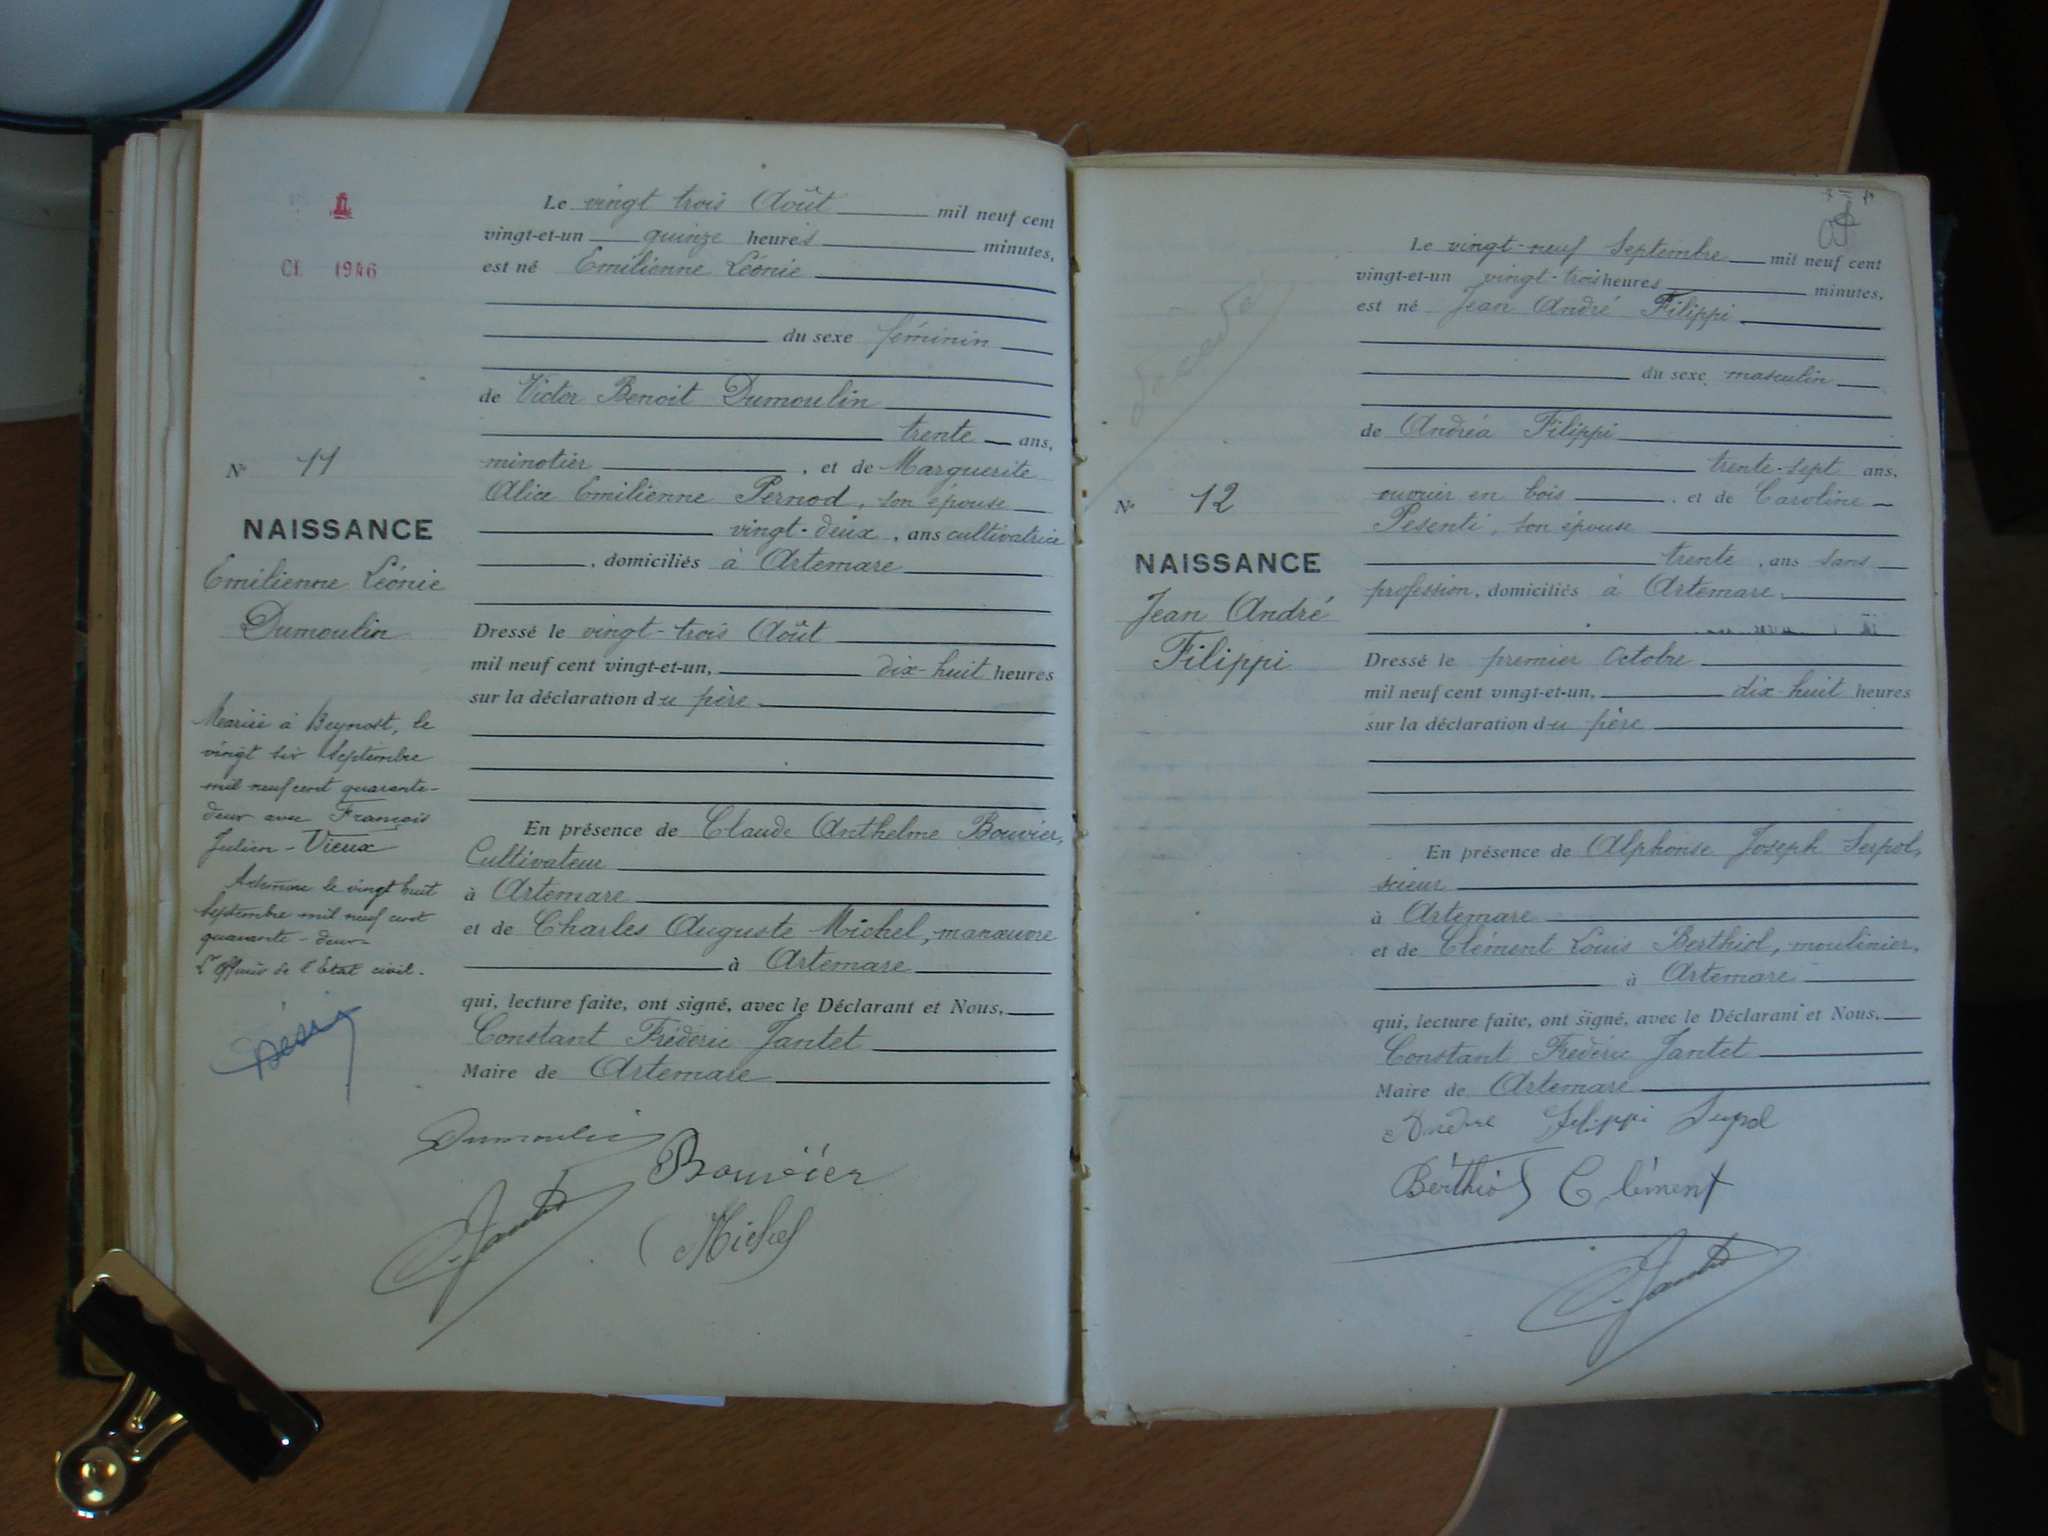 CL 1946
Le vingt trois Août mil neuf cent
vingt-et-un quinze heures minutes,
est né Emilienne Léonie
du sexe féminin
de Victor Benoit Dumoulin
trente ans,
minotier, et de Marguerite
Alice Emilienne Pernod, son épouse
vingt-deux, ans cultivatrice
, domiciliés à Artemare
Dressé le vingt-trois Août
mil neuf cent vingt-et-un, dix-huit heures
sur la déclaration du père
En présence de Claude Anthelme Bouvier,
Cultivateur
à Artemare
et de Charles Auguste Michel, manœuvre
à Artemare
qui, lecture faite, ont signé, avec le Déclarant et Nous,
Constant Frédéric Jantet
Maire de Artemare
Dumoulin
Bouvier
C. Jantet
Michel
N° 11
NAISSANCE
Emilienne Léonie
Dumoulin
Mariée à Beynost, le
vingt six Septembre
mil neuf cent quarante-
deux avec François
Julien Vieux
Artemare le vingt huit
Septembre mil neuf cent
quarante-deux
L'Officier de l'Etat civil.
Le vingt-neuf Septembre mil neuf cent
vingt-et-un vingt-trois heures minutes,
est né Jean André Filippi
du sexe masculin
de Andréa Filippi
trente-sept ans,
ouvrier en bois, et de Caroline
Pesenti, son épouse
trente, ans sans
profession, domiciliés à Artemare
Dressé le premier Octobre
mil neuf cent vingt-et-un, dix-huit heures
sur la déclaration du père
En présence de Alphonse Joseph Serpol,
scieur
à Artemare
et de Clément Louis Berthiol, moulinier,
à Artemare
qui, lecture faite, ont signé, avec le Déclarant et Nous,
Constant Frédéric Jantet
Maire de Artemare
Andre Filippi Serpol
Berthiol Clément
C. Jantet
N° 12
NAISSANCE
Jean André
Filippi